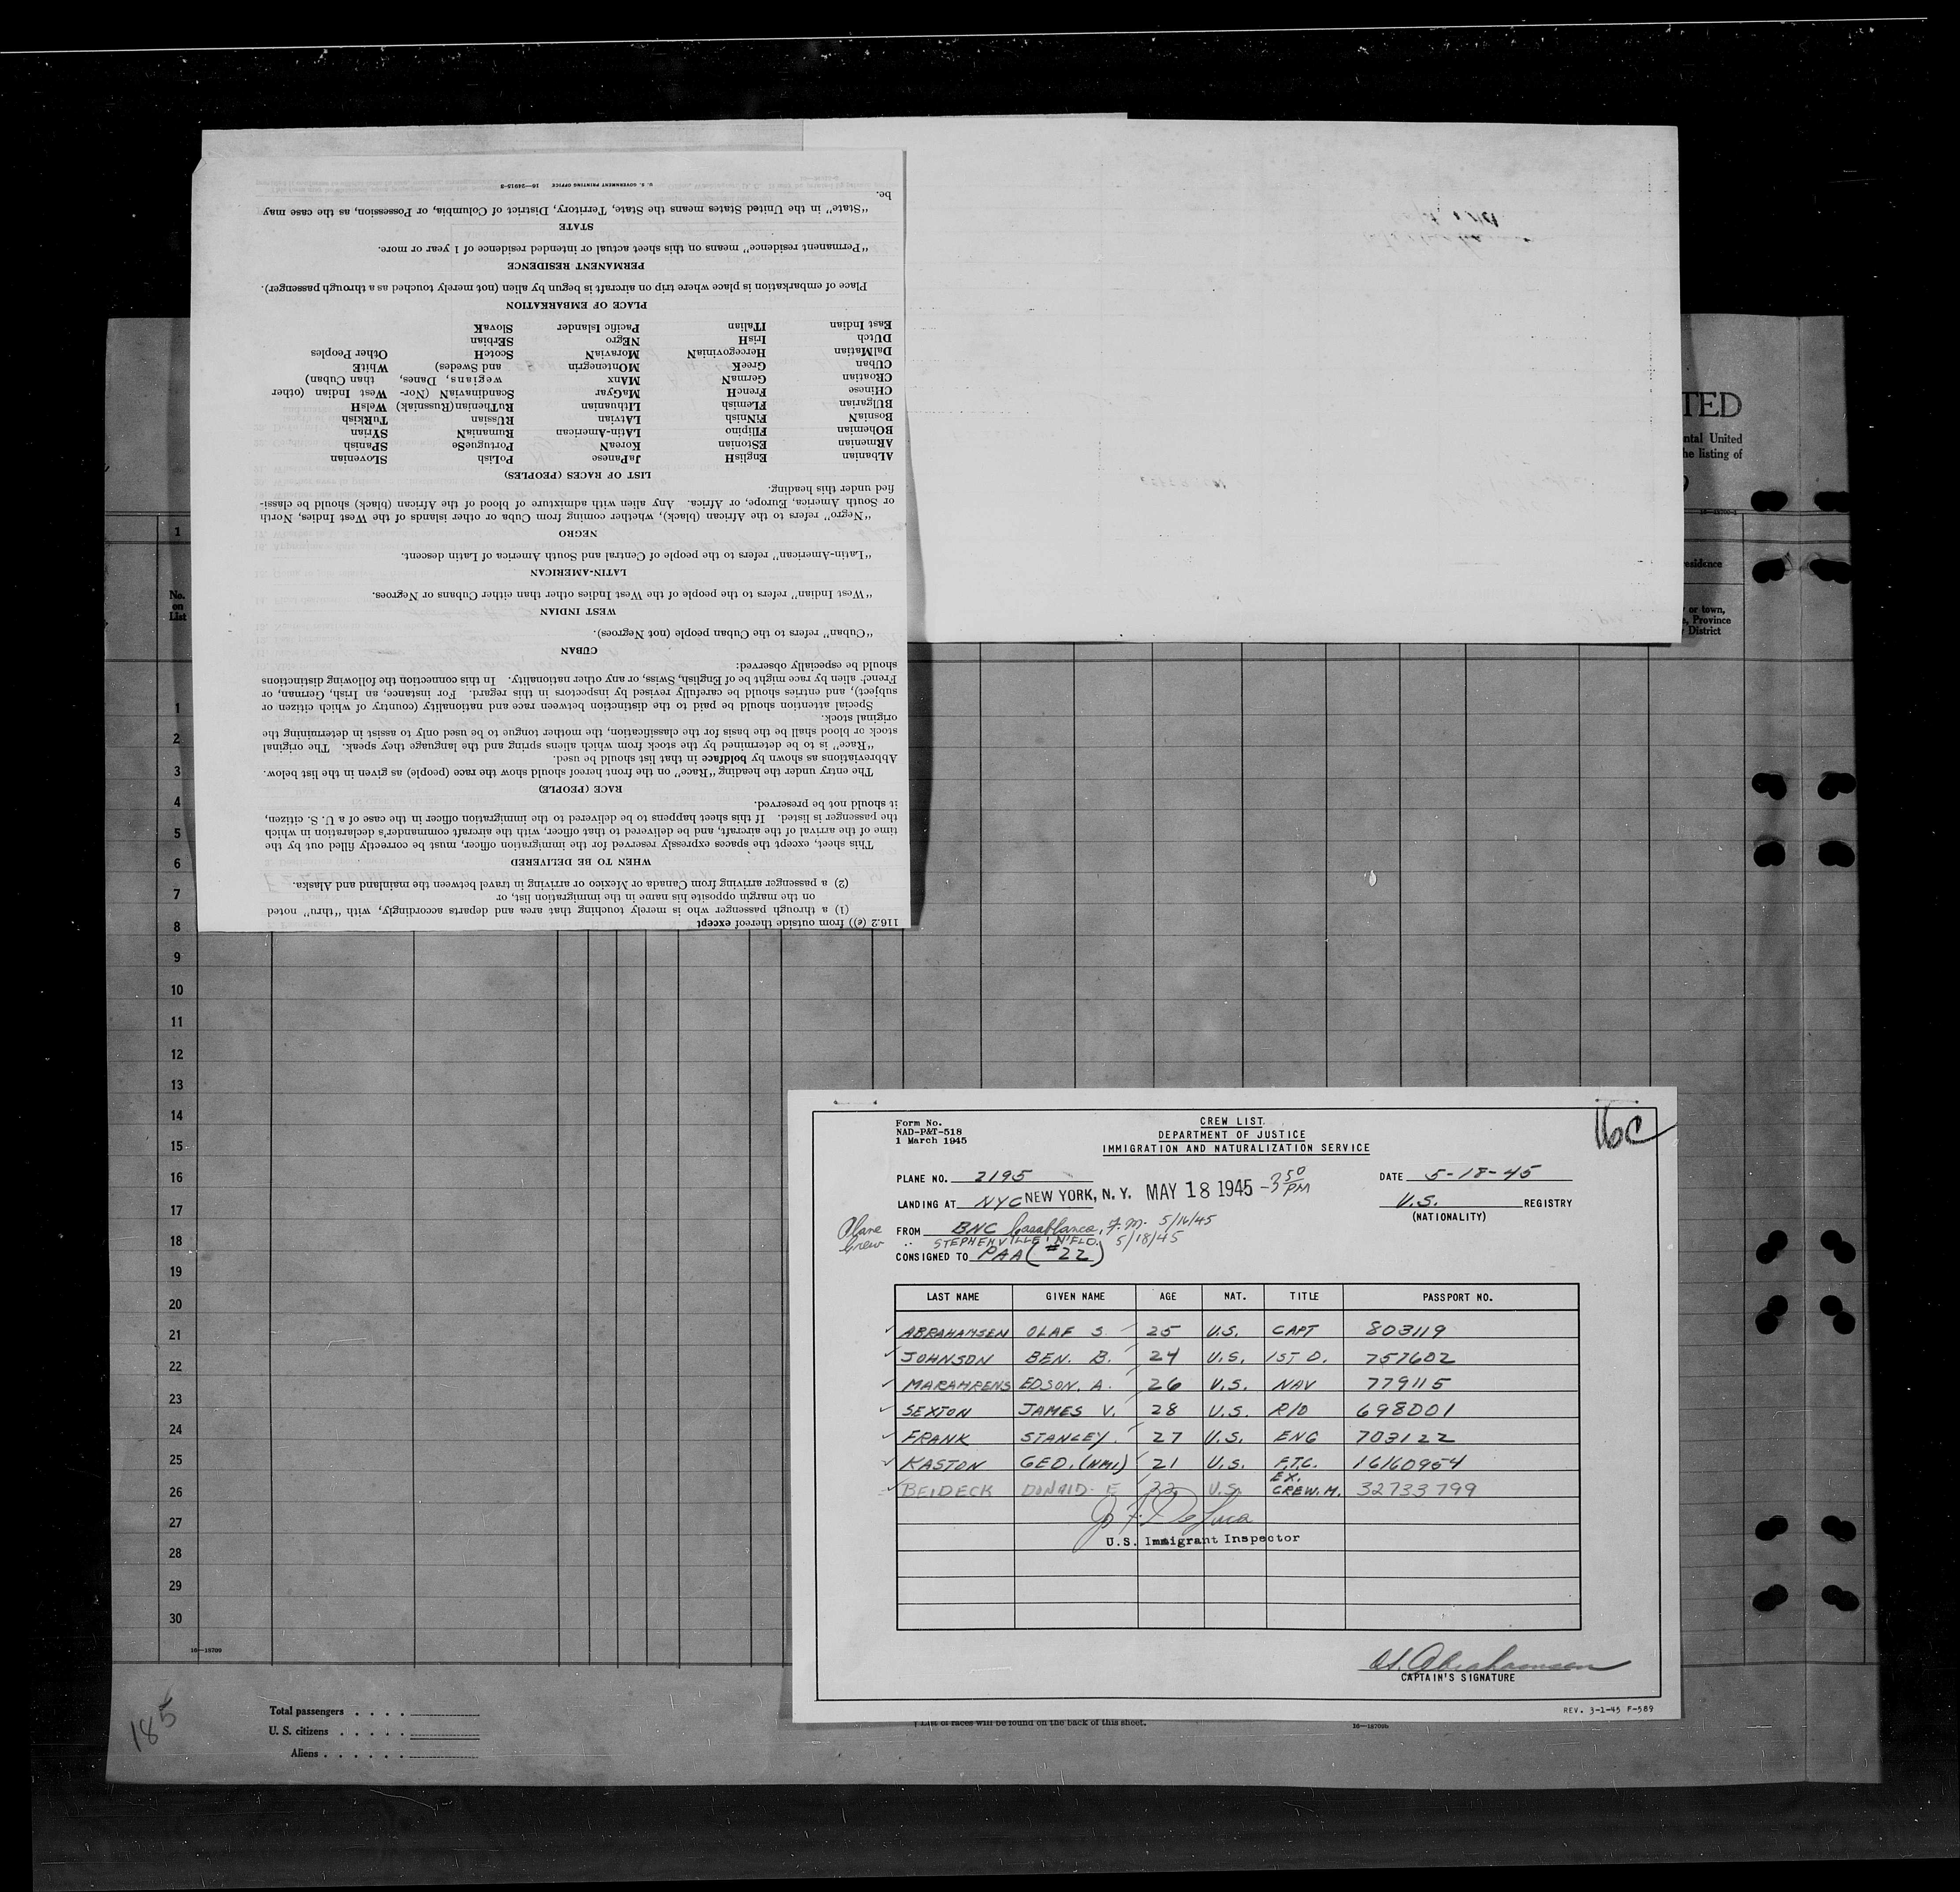 116.2 (e)) from outside thereof except
(1) a through passenger who is merely touching that area and departs accordingly, with “thru” noted
on the margin opposite his name in the immigration list, or
(2) a passenger arriving from Canada or Mexico or arriving in travel between the mainland and Alaska.
WHEN TO BE DELIVERED
This sheet, except the spaces expressly reserved for the immigration officer, must be correctly filled out by the
time of the arrival of the aircraft, and be delivered to that officer, with the aircraft commander's declaration in which
the passenger is listed. If this sheet happens to be delivered to the immigration officer in the case of a U. S. citizen,
it should not be preserved.
RACE (PEOPLE)
The entry under the heading “Race” on the front hereof should show the race (people) as given in the list below.
Abbreviations as shown by boldface in that list should be used.
“Race” is to be determined by the stock from which aliens spring and the language they speak. The original
stock or blood shall be the basis for the classification, the mother tongue to be used only to assist in determining the
original stock.
Special attention should be paid to the distinction between race and nationality (country of which citizen or
subject), and entries should be carefully revised by inspectors in this regard. For instance, an Irish, German, or
French alien by race might be of English, Swiss, or any other nationality. In this connection the following distinctions
should be especially observed:
CUBAN
“Cuban” refers to the Cuban people (not Negroes).
WEST INDIAN
“West Indian” refers to the people of the West Indies other than either Cubans or Negroes.
LATIN-AMERICAN
“Latin-American” refers to the people of Central and South America of Latin descent.
NEGRO
“Negro” refers to the African (black), whether coming from Cuba or other islands of the West Indies, North
or South America, Europe, or Africa. Any alien with admixture of blood of the African (black) should be classi-
fied under this heading.
LIST OF RACES (PEOPLES)
ALbanian EnglisH JaPanese PoLish SLOvenian
ARmenian EStonian KoreaN PortugueSe SPanish
BOhemian FIlipino LAtin-American RumaniaN SYrian
BosniaN FiNnish LAtvian RUssian TuRKish
BUlgarian FLemish LIthuanian RuThenian (Russniak) WelsH
CHinese FrencH MaGyar ScandinaviaN (Nor- West Indian (other
CRoatian GermaN MAnx wegians, Danes, than Cuban)
CUban GreeK MOntenegrin and Swedes) WhiTE
DalMatian HercegoviniaN MoraviaN ScotcH Other Peoples
DUtch IrisH NEgro SErbian
East Indian ITalian Pacific Islander SlovaK
PLACE OF EMBARKATION
Place of embarkation is place where trip on aircraft is begun by alien (not merely touched as a through passenger).
PERMANENT RESIDENCE
“Permanent residence” means on this sheet actual or intended residence of 1 year or more.
STATE
“State” in the United States means the State, Territory, District of Columbia, or Possession, as the case may
be.
U. S. GOVERNMENT PRINTING OFFICE 16—24915-2
TED
ntal United
he listing of
esidence
or town,
Province
District
1
No.
on
List
1
2
3
4
5
6
7
8
9
10
11
12
13
14
15
16
17
18
19
20
21
22
23
24
25
26
27
28
29
30
16—18709
Total passengers . . . .
U. S. citizens . . . . .
Aliens . . . . . .
185
Form No.
NAD-P&T-518
1 March 1945
CREW LIST
DEPARTMENT OF JUSTICE
IMMIGRATION AND NATURALIZATION SERVICE
16C
PLANE NO. 2195
DATE 5-18-45
LANDING AT NYC NEW YORK, N. Y. MAY 18 1945 - 3 50 PM
U.S. REGISTRY
(NATIONALITY)
Plane Crew
FROM BNC Casablanca, F.M. 5/16/45
" STEPHENVILLE, N'FLD. 5/18/45
CONSIGNED TO PAA (#22)
LAST NAME GIVEN NAME AGE NAT. TITLE PASSPORT NO.
ABRAHAMSEN OLAF S. 25 U.S. CAPT 803119
JOHNSON BEN. B. 24 U.S. 1ST O. 757602
MARAHRENS EDSON. A. 26 U.S. NAV 779115
SEXTON JAMES V. 28 U.S. R/O 698001
FRANK STANLEY. 27 U.S. ENG 703122
KASTON GEO. (NMI) 21 U.S. F.T.C. 16160954
BEIDECK DONALD E 22 U.S. EX. CREW.M. 32733799
J. F. DeLuca
U.S. Immigrant Inspector
O.S. Abrahamsen
CAPTAIN'S SIGNATURE
REV. 3-1-45 F-589
† List of races will be found on the back of this sheet.
16—18709b